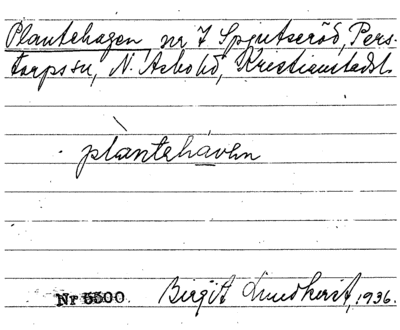 Plantehagen nr 7 Spjutseröd, Pers-
torps sn, N. Åsbo hd, Kristianstads l.
plàntehàven
Nr 5500. Birgit Lundkvist, 1936.